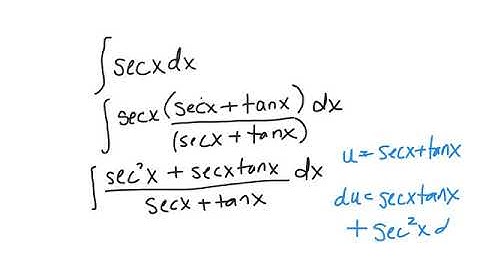 ∫ secx dx
∫ secx (secx + tanx) dx
(secx + tanx)
∫ sec²x + secxtanx dx
secx + tanx
u = secx + tanx
du = secxtanx
+ sec²x d